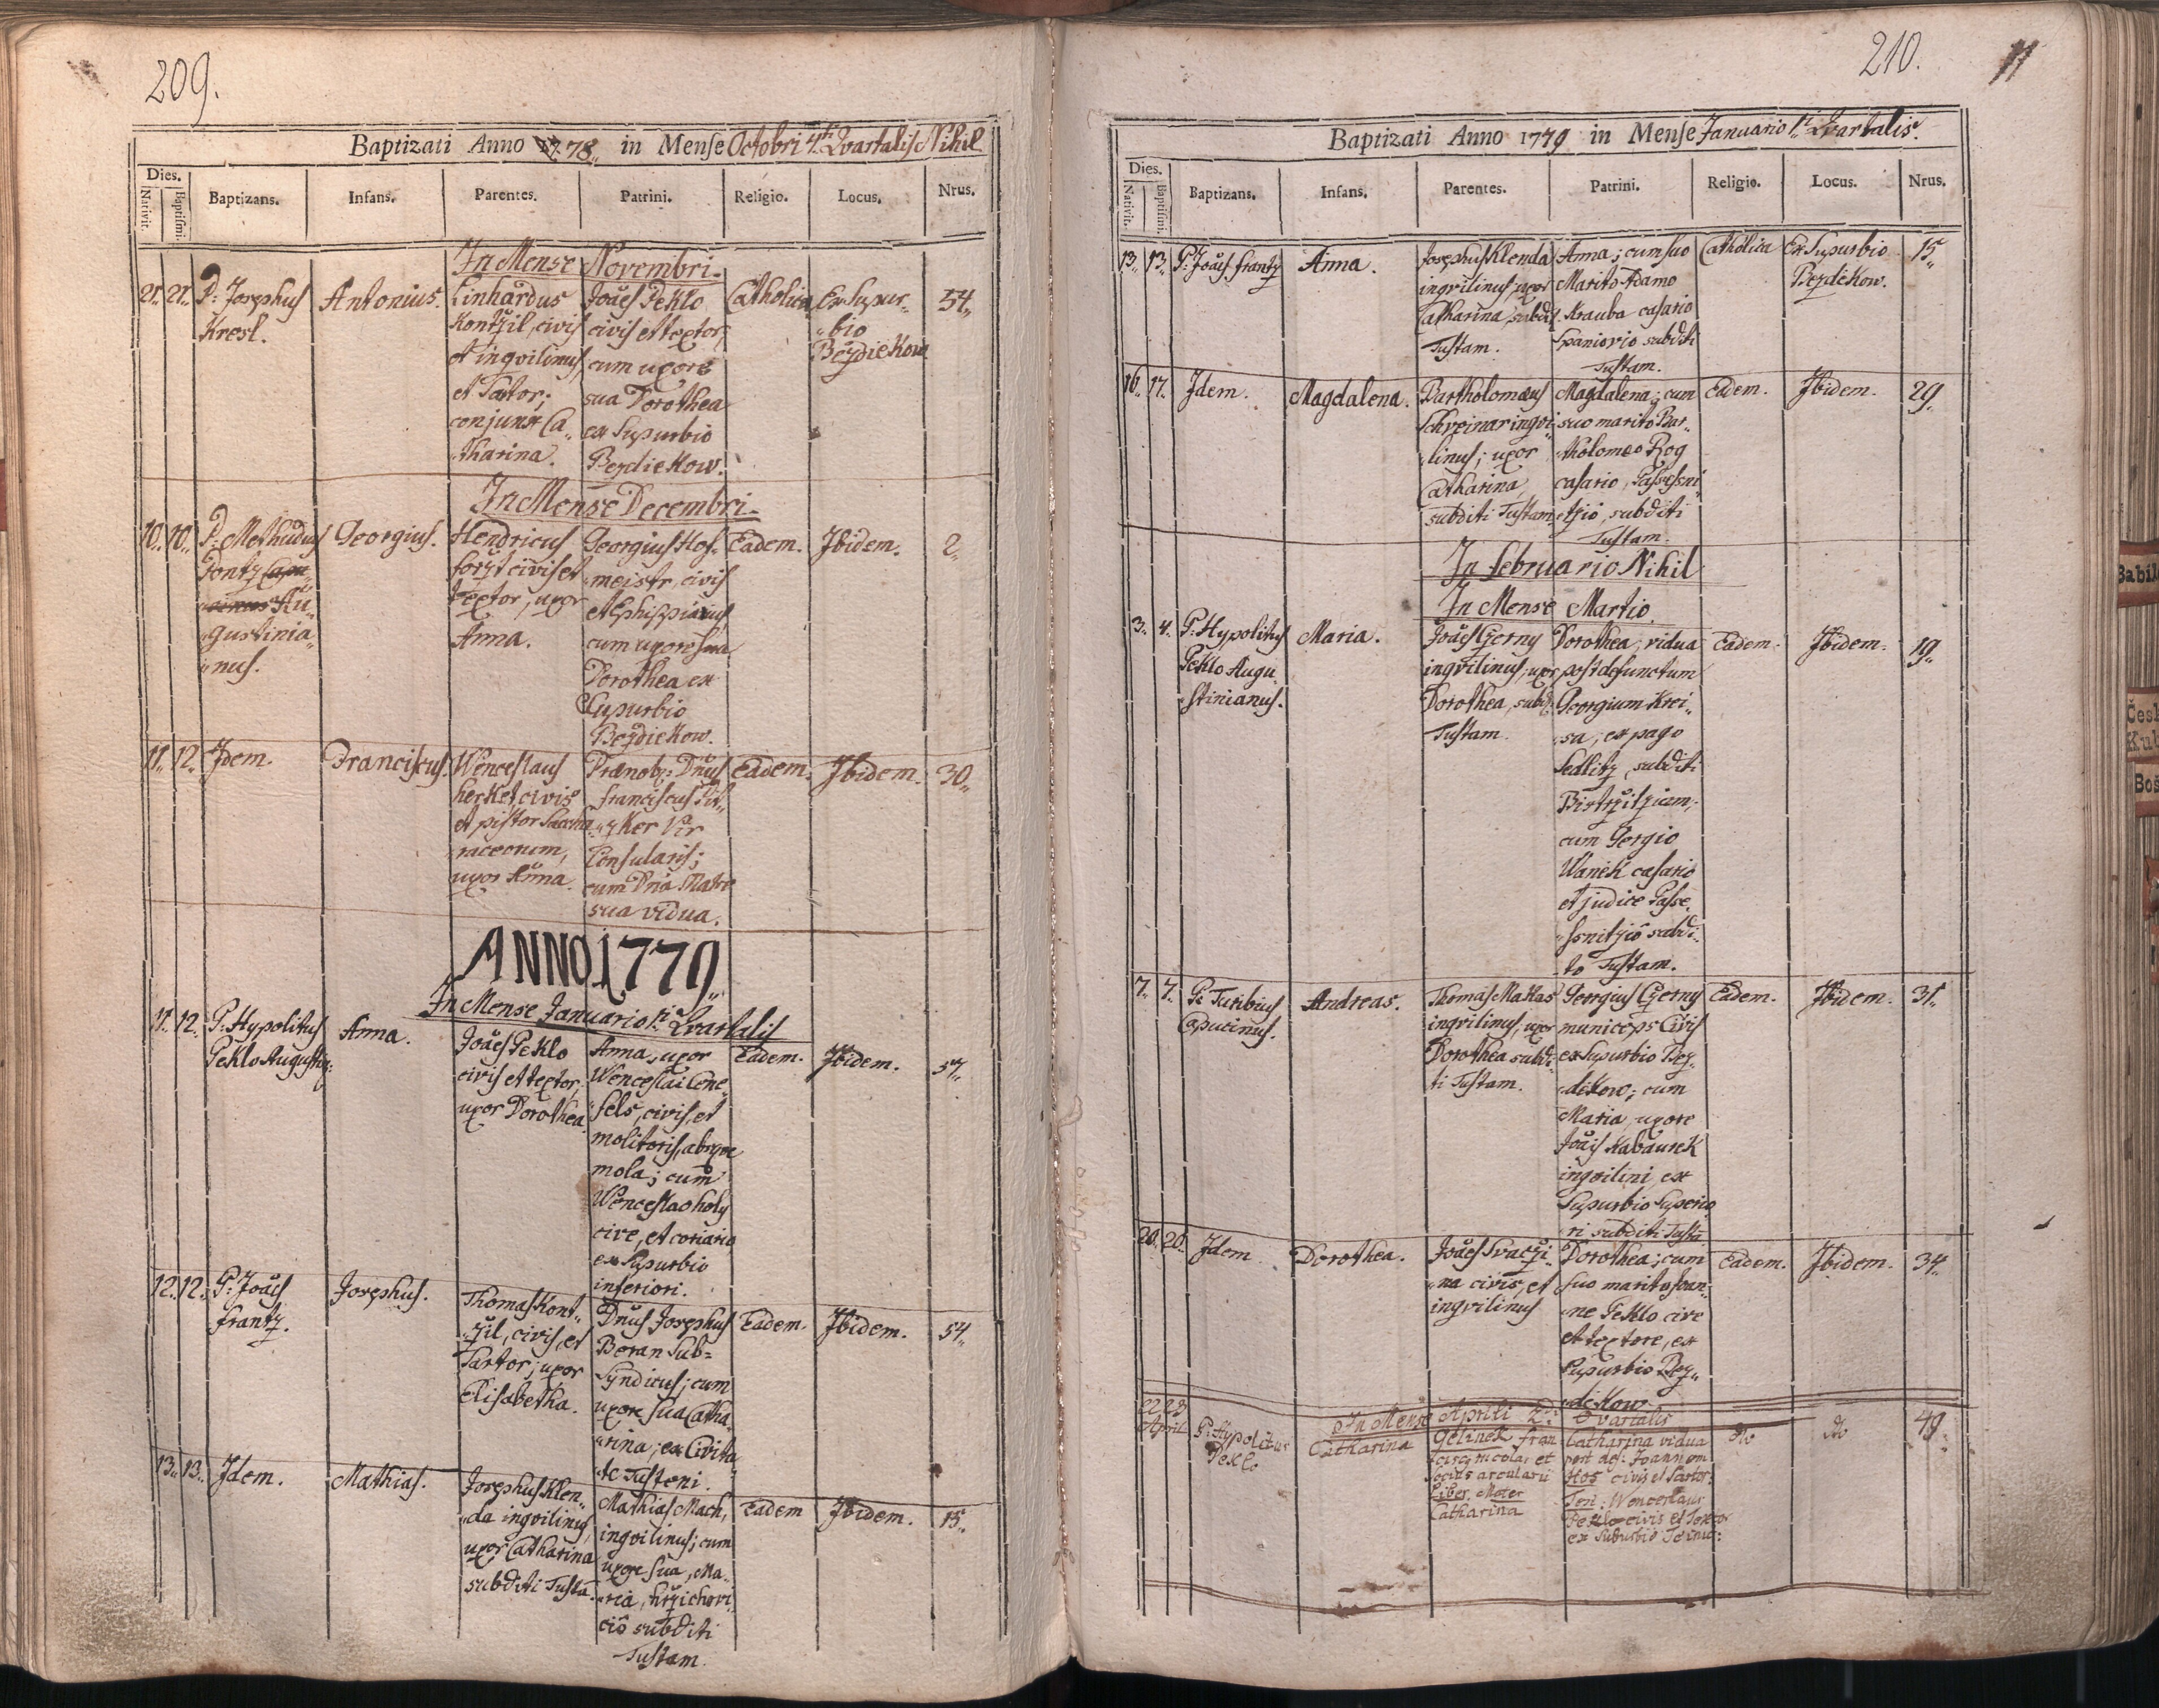 209.
Baptizati Anno 1778 in Mense Octobri 4ti Qvartalis Nihil
Dies.
Nativit.
Baptismi.
Baptizans.
Infans.
Parentes.
Patrini.
Religio.
Locus.
Nrus.
In Mense Novembri.
21. 21.
P: Josephus
Kresl.
Antonius.
Linhardus
Kontzil, civis
et inqvilinus
et Sartor;
conjunx Ca„
„tharina.
Joães Peklo
civis et textor,
cum uxore
sua Dorothea
ex Supurbio
Bezdiekow.
Catholica
Ex Supur„
„bio
Bezdiekow
54„
In Mense Decembri.
10. 10.
P: Methudius
Gontz
Au„
„gustinia„
„nus.
Georgius.
Hendricus
civis et
textor, uxor
Anna.
Georgius Hof„
„meistr, civis
et Ephippiarius
cum uxore sua
Dorothea ex
Supurbio
Bezdiekow.
Eadem.
Ibidem.
2„
11. 12.
Idem.
Franciscus.
Wenceslaus
herket, civis
et pistor
uxor Anna.
Prænob: Dñus
Franciscus
Vir
Consularis;
cum Dña Matre
sua vidua.
Eadem.
Ibidem.
30„
ANNO 1779„
In Mense Januario 1mi Qvartalis
11. 12.
P: Hypolitus
Peklo Augustin:
Anna.
Joães Peklo
civis et textor,
uxor Dorothea.
Anna, uxor
Wenceslai Cene„
„fels, civis, et
molitoris,
mola; cum
Wenceslao holy
cive, et coriario
ex Supurbio
inferiori.
Eadem.
Ibidem.
57„
12. 12.
P: Joães
frantz.
Josephus.
Thomas Kont„
„zil, civis, et
Sartor; uxor
Elisabetha.
Dñus Josephus
Beran Sub=
Syndicus; cum
uxore sua Catha„
„rina; ex Civita„
te Tusteni.
Eadem.
Ibidem.
54„
13. 13.
Idem.
Mathias.
Josephus Klen„
„da inqvilinus,
uxor Catharina
subditi Tusta.
Mathias Mach,
inqvilinus; cum
uxore sua, Ma„
„ria,
subditi
Tustam.
Eadem
Ibidem.
15„
210.
11
Baptizati Anno 1779 in Mense Januario 1mi Qvartalis.
Dies.
Nativit.
Baptismi.
Baptizans.
Infans.
Parentes.
Patrini.
Religio.
Locus.
Nrus.
13. 13.
P: Joães frantz
Anna.
Josephus Klenda
inqvilinus, uxor
Catharina, subdi
Tustam.
Anna; cum suo
Marito Adamo
Krauba casario
Spaniovio subditi
Tustam.
Catholica
Ex Supurbio
Bezdikow.
15„
16. 17.
Idem.
Magdalena.
Bartholomæus
Schreinar inqvi„
„linus; uxor
Catharina
subditi Tustam.
Magdalena; cum
suo marito Bar„
„tholomeo Rog
casario,
subditi
Tustam.
Eadem.
Ibidem.
29„
In Februario Nihil
In Mense Martio.
3. 4.
P: Hypolitus
Peklo Augu„
„stinianus.
Maria.
Joães Czerny
inqvilinus, uxor
Dorothea, subd:
Tustam.
Dorothea, vidua
post defunctum
Georgium Krei„
„sa, ex pago
Sedlitz, subditi
cum Gorgio
Wanek casario
et judice Passe„
„ssnitzio subdi„
to Tustam.
Eadem.
Ibidem.
19„
7. 7.
P: Turibius
Capucinus.
Andreas.
Thomas Makas
inqvilinus, uxor
Dorothea subdi„
ti Tustam.
Georgius Czerny
municeps Civis
ex Supurbio Bez„
„dikow; cum
Maria, uxore
Joäis Kabaurek
inqvilini, ex
Supurbio Superio„
„ri subditi Tusta.
Eadem.
Ibidem.
31„
20. 20.
Idem.
Dorothea.
Joães Svaczi„
„na civis, et
inqvilinus
Dorothea; cum
suo marito Joan„
„ne Peklo cive
et textore, ex
Supurbio Bez„
„dikow.
Eadem.
Ibidem.
34„
In Mense Aprili 2di Qvartalis
22 23
April
P: Hypolitus
Peklo
Catharina
Gelinek Fran
cisc, et
Socius arcularii
Liber. Mater
Catharina
Catharina vidua
post def: Joannem
Hos civis et Sartor.
Test: Wenceslaus
Peklo civis et Textor
ex Suburbio
do
do
49